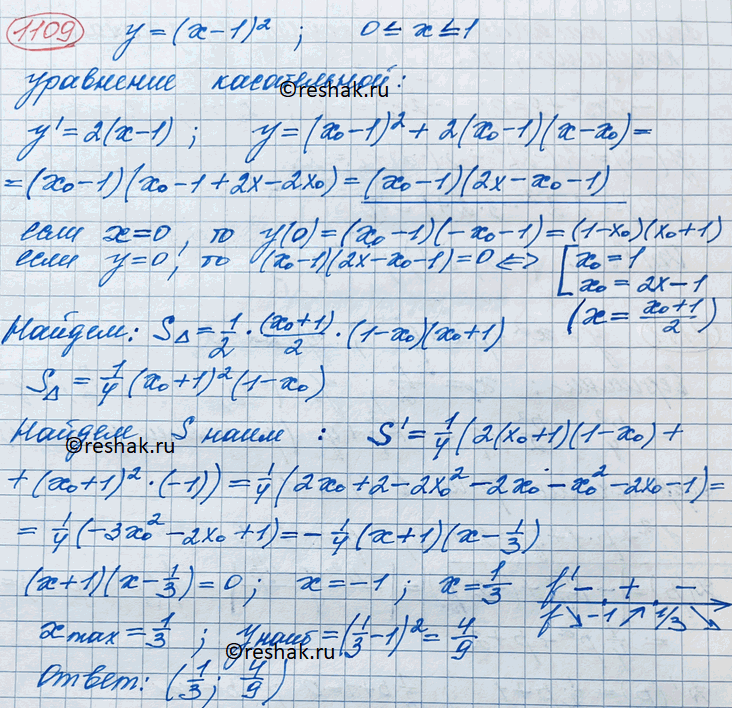 1109 y = (x-1)² ; 0 ≤ x ≤ 1
уравнение касательной:
©reshak.ru
y' = 2(x-1) ; y = (x₀-1)² + 2(x₀-1)(x-x₀) =
= (x₀-1)(x₀-1+2x-2x₀) = (x₀-1)(2x-x₀-1)
если x=0, то y(0) = (x₀-1)(-x₀-1) = (1-x₀)(x₀+1)
если y=0, то (x₀-1)(2x-x₀-1)=0 <=> [ x₀=1
x₀ = 2x-1
(x = (x₀+1)/2)
Найдем: S△ = 1/2 · (x₀+1)/2 · (1-x₀)(x₀+1)
S△ = 1/4 (x₀+1)² (1-x₀)
Найдем S наим : S' = 1/4 (2(x₀+1)(1-x₀) +
©reshak.ru
+ (x₀+1)² · (-1)) = 1/4 (2x₀+2-2x₀²-2x₀-x₀²-2x₀-1) =
= 1/4 (-3x₀²-2x₀+1) = -1/4 (x+1)(x-1/3)
(x+1)(x-1/3) = 0 ; x = -1 ; x = 1/3 f' - + -
f ↘ -1 ↗ 1/3 ↘
xmax = 1/3 ; yнаиб = (1/3-1)² = 4/9
©reshak.ru
Ответ: (1/3 ; 4/9)